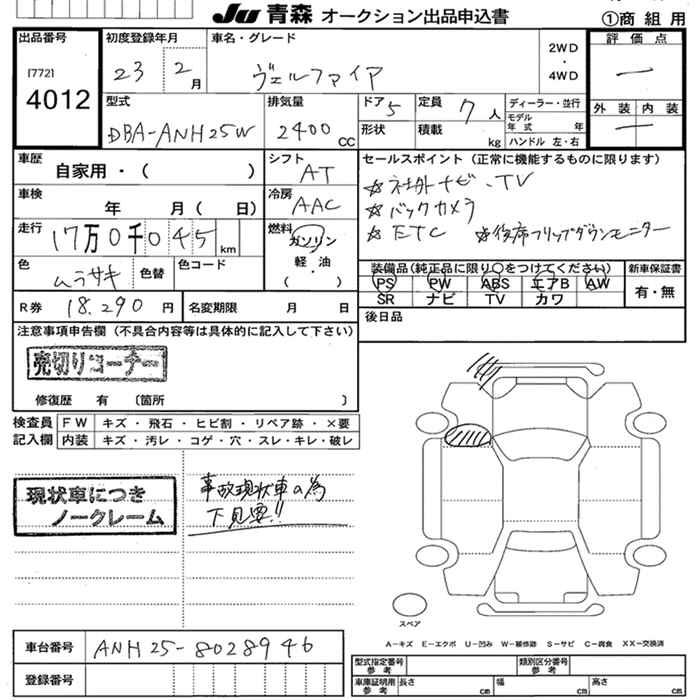 JU 青森 オークション出品申込書
①商組用
出品番号
[772]
4012
初度登録年月
23 2月
車名・グレード
ヴェルファイア
2WD
・
4WD
評価点
―
外装 内装
―
型式
DBA-ANH25W
排気量
2400CC
ドア 5
形状
定員 7人
積載 kg
ディーラー・並行
モデル年式 年
ハンドル 左・右
車歴
自家用・( )
シフト
AT
車検
年 月( 日)
冷房
AAC
走行
17万0千045km
燃料
ガソリン
軽・油
( )
色
ムラサキ
色替
色コード
R券 18.290円
名変期限 月 日
セールスポイント(正常に機能するものに限ります)
☆社外ナビ、TV
☆バックカメラ
☆ETC ☆後席フリップダウンモニター
装備品(純正品に限り○をつけてください)
PS PW ABS エアB AW
SR ナビ TV カワ
新車保証書
有・無
後日品
注意事項申告欄(不具合内容等は具体的に記入して下さい)
売切りコーナー
修復歴 有 〔箇所 〕
検査員記入欄
FW キズ・飛石・ヒビ割・リペア跡・×要
内装 キズ・汚レ・コゲ・穴・スレ・キレ・破レ
現状車につき
ノークレーム
事故現状車の為
下見要!!
スペア
A-キズ E-エクボ U-凹み W-補修跡 S-サビ C-腐食 XX-交換済
車台番号 ANH25-8028946
登録番号
型式指定番号参考
類別区分番号参考
車庫証明用参考
長さ cm 幅 cm 高さ cm